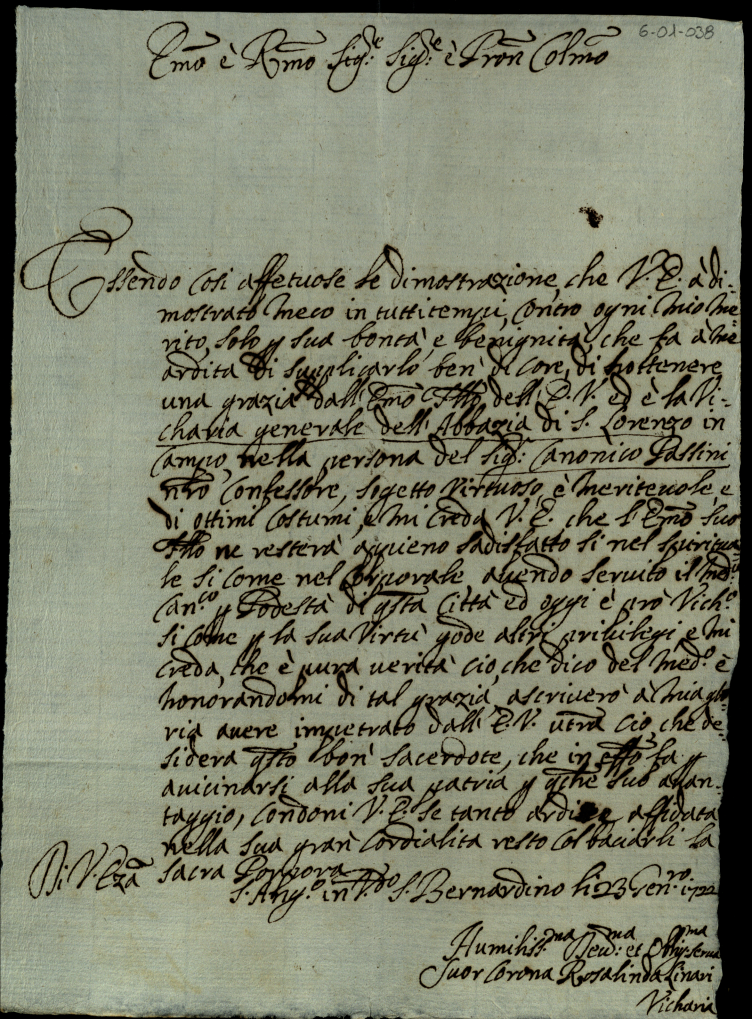 6-01-038
Emo è Rmo Sig.re Sig.re è Pron Colmo
Essendo cosi affetuose le dimostrazione, che V. E. à di-
mostrato meco in tutti tempi, contro ogni mio me-
rito, solo p sua bontà, e benignità, che fa à me
ardita di supplicarlo ben di core, di hottenere
una grazia dall Emo dell E. V. ed è la Vi-
charia generale dell'Abbazia di S. Lorenzo in
Campo, nella persona del Sig.r Canonico Passini
nro Confessore, sogetto virtuoso, è meritevole, e
di ottimi costumi, e mi creda V. E. che l'Emo suo
ne resterà appieno sadisfatto si nel spiritua-
le si come nel corporale avendo servito il med.o
Can.co p Podestà di qsta Città ed oggi è pro Vich.o
si come p la sua virtù gode altri privilegi e mi
creda, che è pura verità cio, che dico del med.o è
honorandomi di tal grazia, ascriverò à mia glo-
ria avere impetrato dall E. V. cio, che de-
sidera qsto bon sacerdote, che in fa p
avicinarsi alla sua patria p qche suo avan-
taggio, condoni V. E. se tanto ardisce affidata
nella sua gran cordialità resto col baciarli la
sacra Porpora
Di V. Eza
S. Ang.o in V.do S. Bernardino li 23 Gen.ro 1722
Humiliss.ma Dev.ma et Obbig.ma serva
Suor Corona Rosalinda Linari
Vicharia